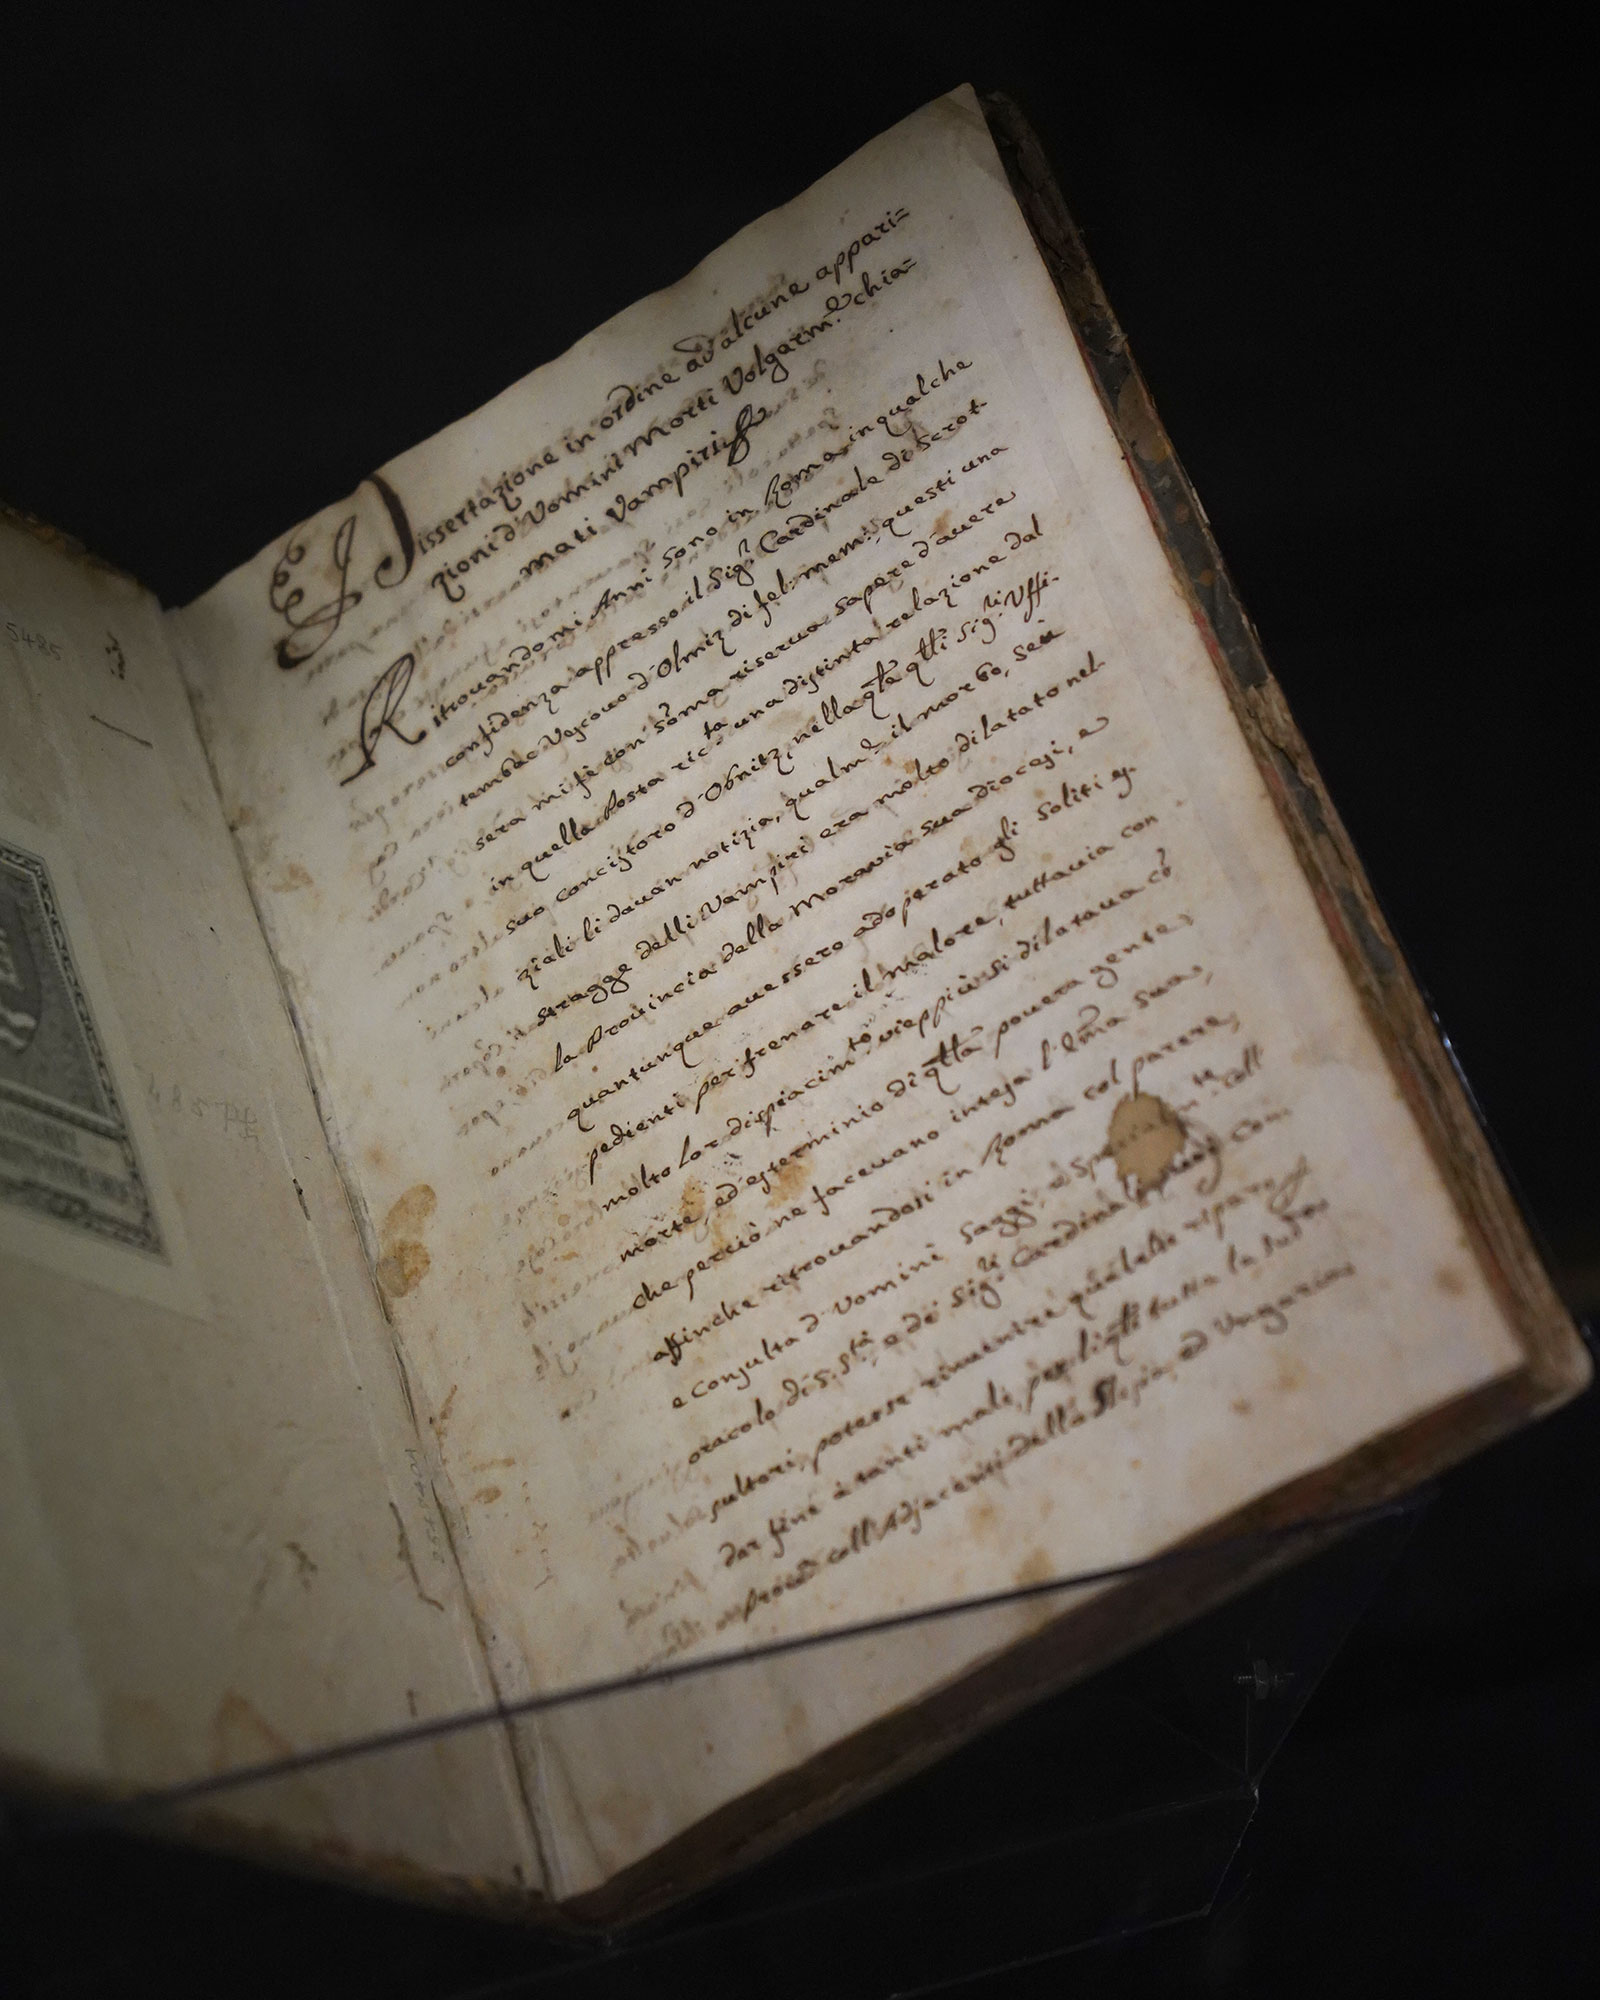 5485
Dissertazione in ordine ad alcune appari=
zioni d'Uomini Morti Volgarm.e chia=
mati Vampiri
Ritrouandomi Anni sono in Roma in qualche
confidenza appresso il Sig.r Cardinale di Scrot-
tembac Vescouo d'Olmiz di fel: mem: questi una
sera mi fè con som̃a riserua sapere d'auere
in quella Posta ric.ta una distinta relazione dal
suo concistoro d'Obnitz, nella q̃le q̃lli Sig.ri Uffi-
ziali li dauan notizia, qualm.e il morbo, seù
stragge delli Vampiri era molto dilatato nel-
la Prouincia della Moravia sua diocesi, e
quantunque auessero adoperato gli soliti es-
pedienti per frenare il malore, tuttauia con
molto lor dispiacim.to uieppiù si dilataua cõ
morte, ed esterminio di q̃lla pouera gente,
che perciò ne faceuano intesa l'Em̃a Sua,
affinche ritrouandosi in Roma col parere,
e Consulta d'Uomini saggi, e coll
oracolo di S. S.tà, e de Sig.ri Cardinali suoi Con-
sultori, potesse rinuenire qualche riparo
dar fine à tanti mali, per li q̃li tutta la sud.a
prou.a coll'Adjacenti della Slesia, ed Ungaria